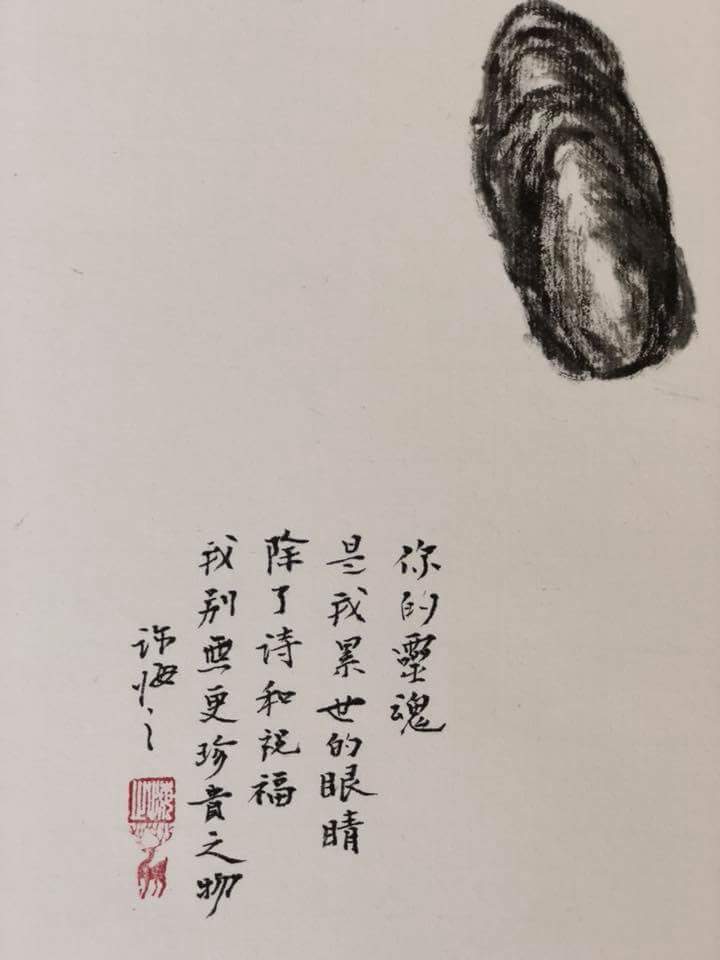 你的靈魂
是我累世的眼睛
除了诗和祝福
我别無更珍貴之物
許悔之